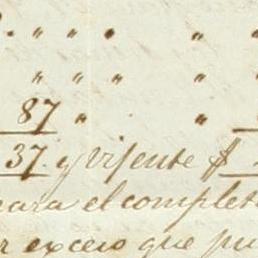 " " " " "
" " " "
87 " . "
37. y Visente $
cara el complet
r exceso que pu